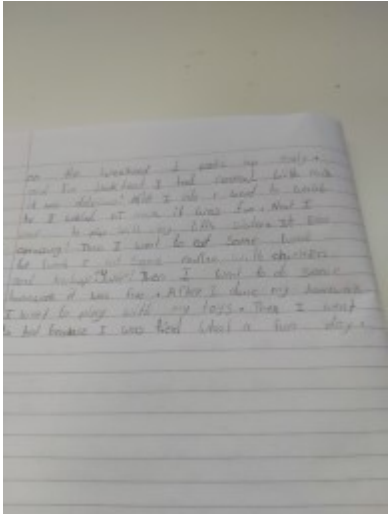 on the weekend I woke up early.
and for breakfast I had cereal with milk
it was delicious! After I ate I went to watch
tv I watched it was fun. Next I
went to play with my little sister. It was
amazing! Then I went to eat some lunch
for lunch I eat some noodles with chicken
and Then I went to do some
homework it was fun. After I done my homework
I went to play with my toys. Then I went
to bed because I was tired what a fun day.